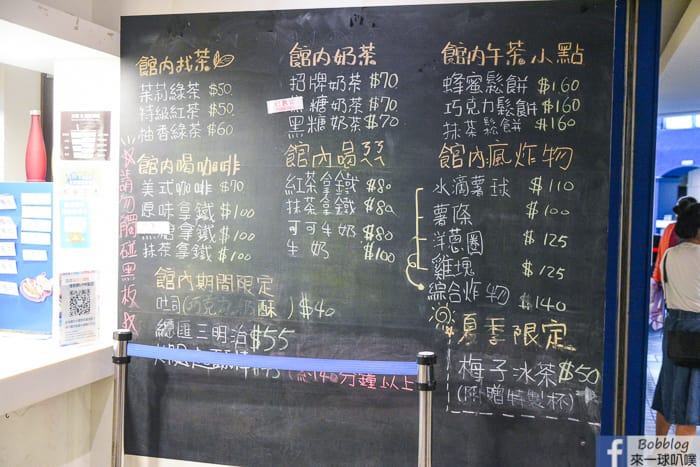 館內找茶
茉莉綠茶 $50
特級紅茶 $50
柚香綠茶 $60
館內喝咖啡
美式咖啡 $70
原味拿鐵 $100
黑糖拿鐵 $100
抹茶拿鐵 $100
館內奶茶
招牌奶茶 $70
黑糖奶茶 $70
黑糖奶茶 $70
館內喝
紅茶拿鐵 $80
抹茶拿鐵 $80
可可牛奶 $80
牛奶 $100
館內午茶小點
蜂蜜鬆餅 $160
巧克力鬆餅 $160
抹茶鬆餅 $160
館內瘋炸物
水滴薯球 $110
薯條 $100
洋蔥圈 $125
雞塊 $125
綜合炸物 $140
館內期間限定
吐司(巧克力/奶酥) $40
總匯三明治 $55
(約40分鐘以上
夏季限定
梅子冰茶 $50
(附贈特製杯)
請勿觸碰黑板
Bobblog
來一球叭噗